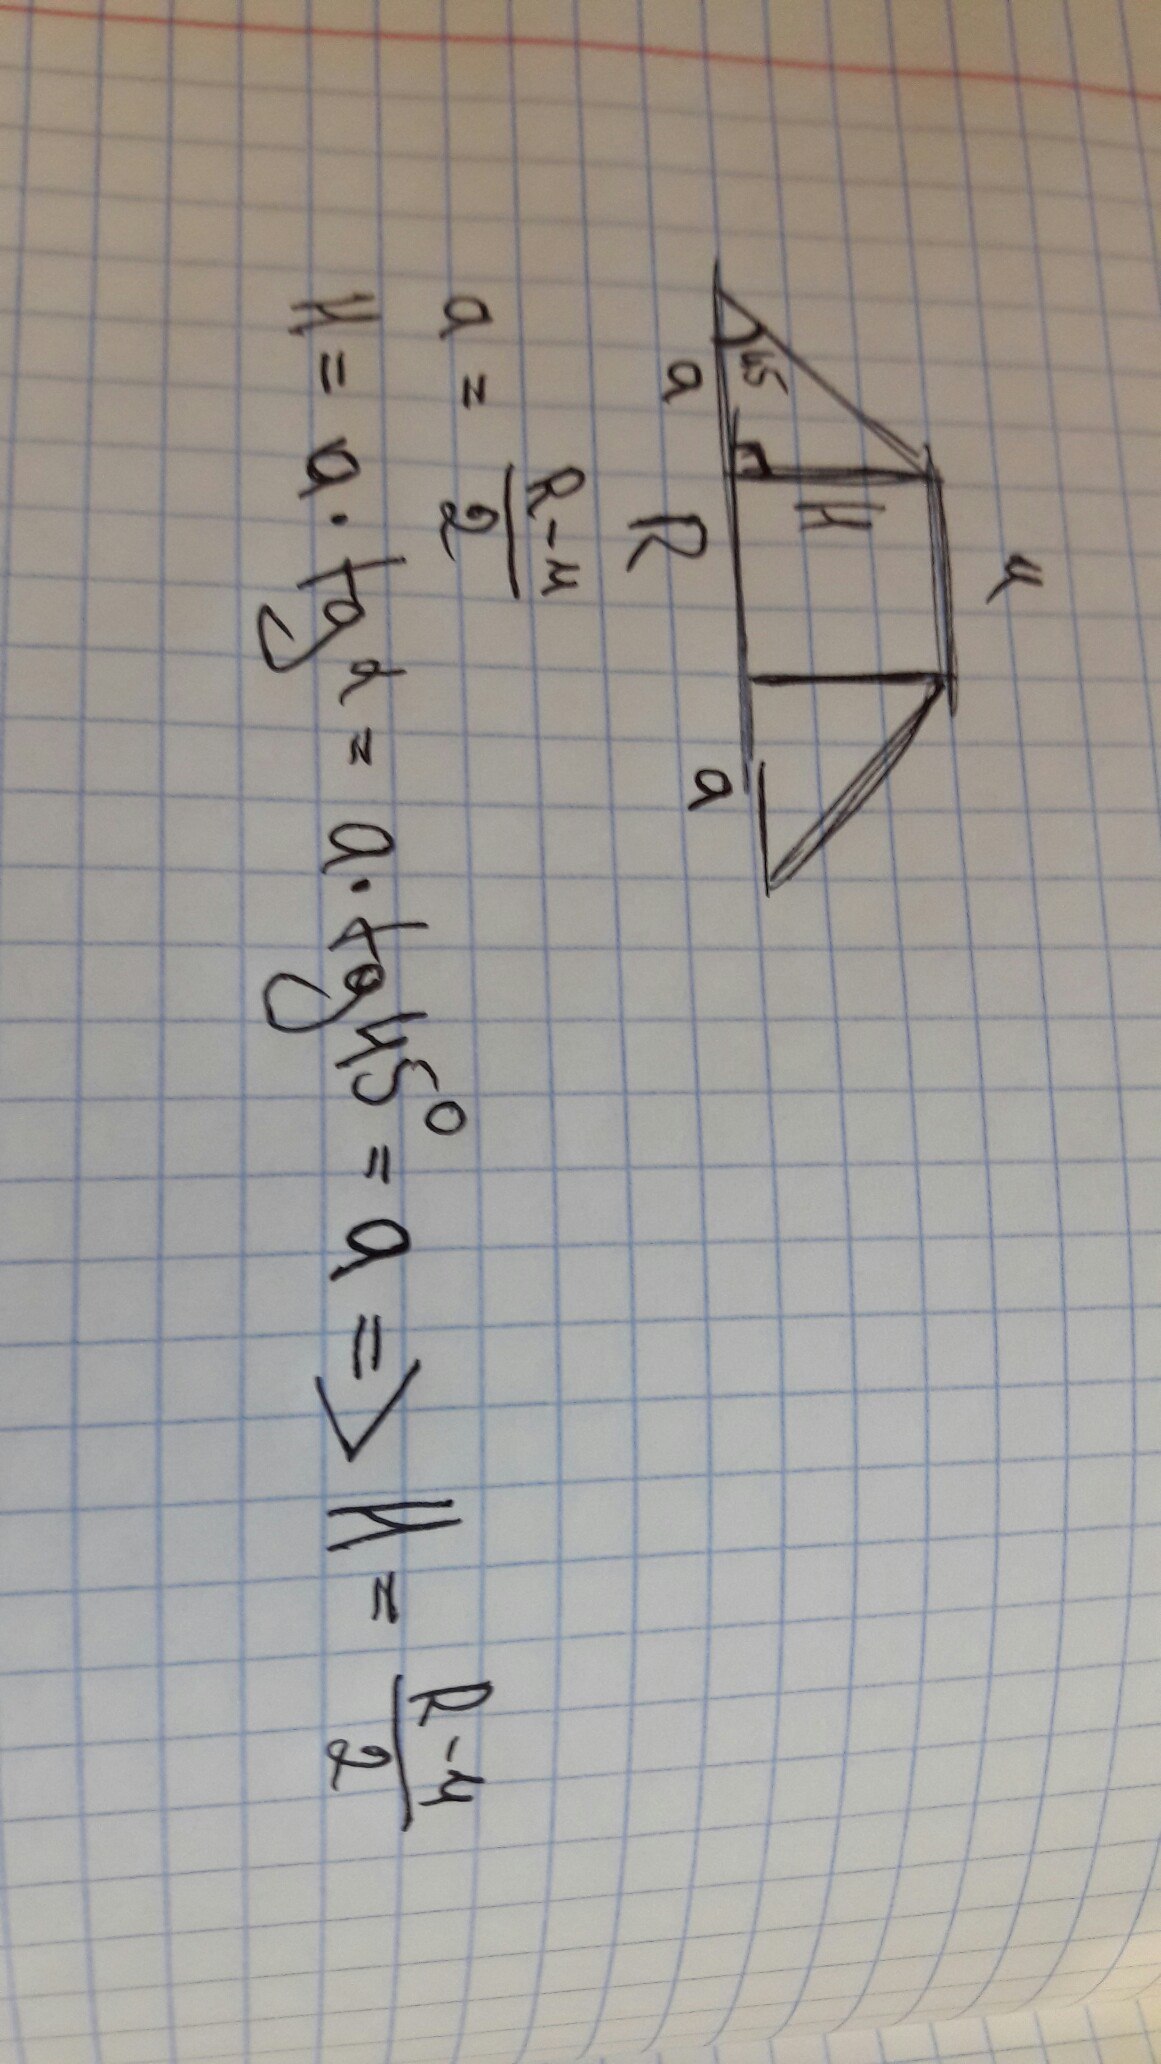 r
45 H
a R a
a = \frac{R-r}{2}
H = a · tg α = a · tg 45° = a => H = \frac{R-r}{2}